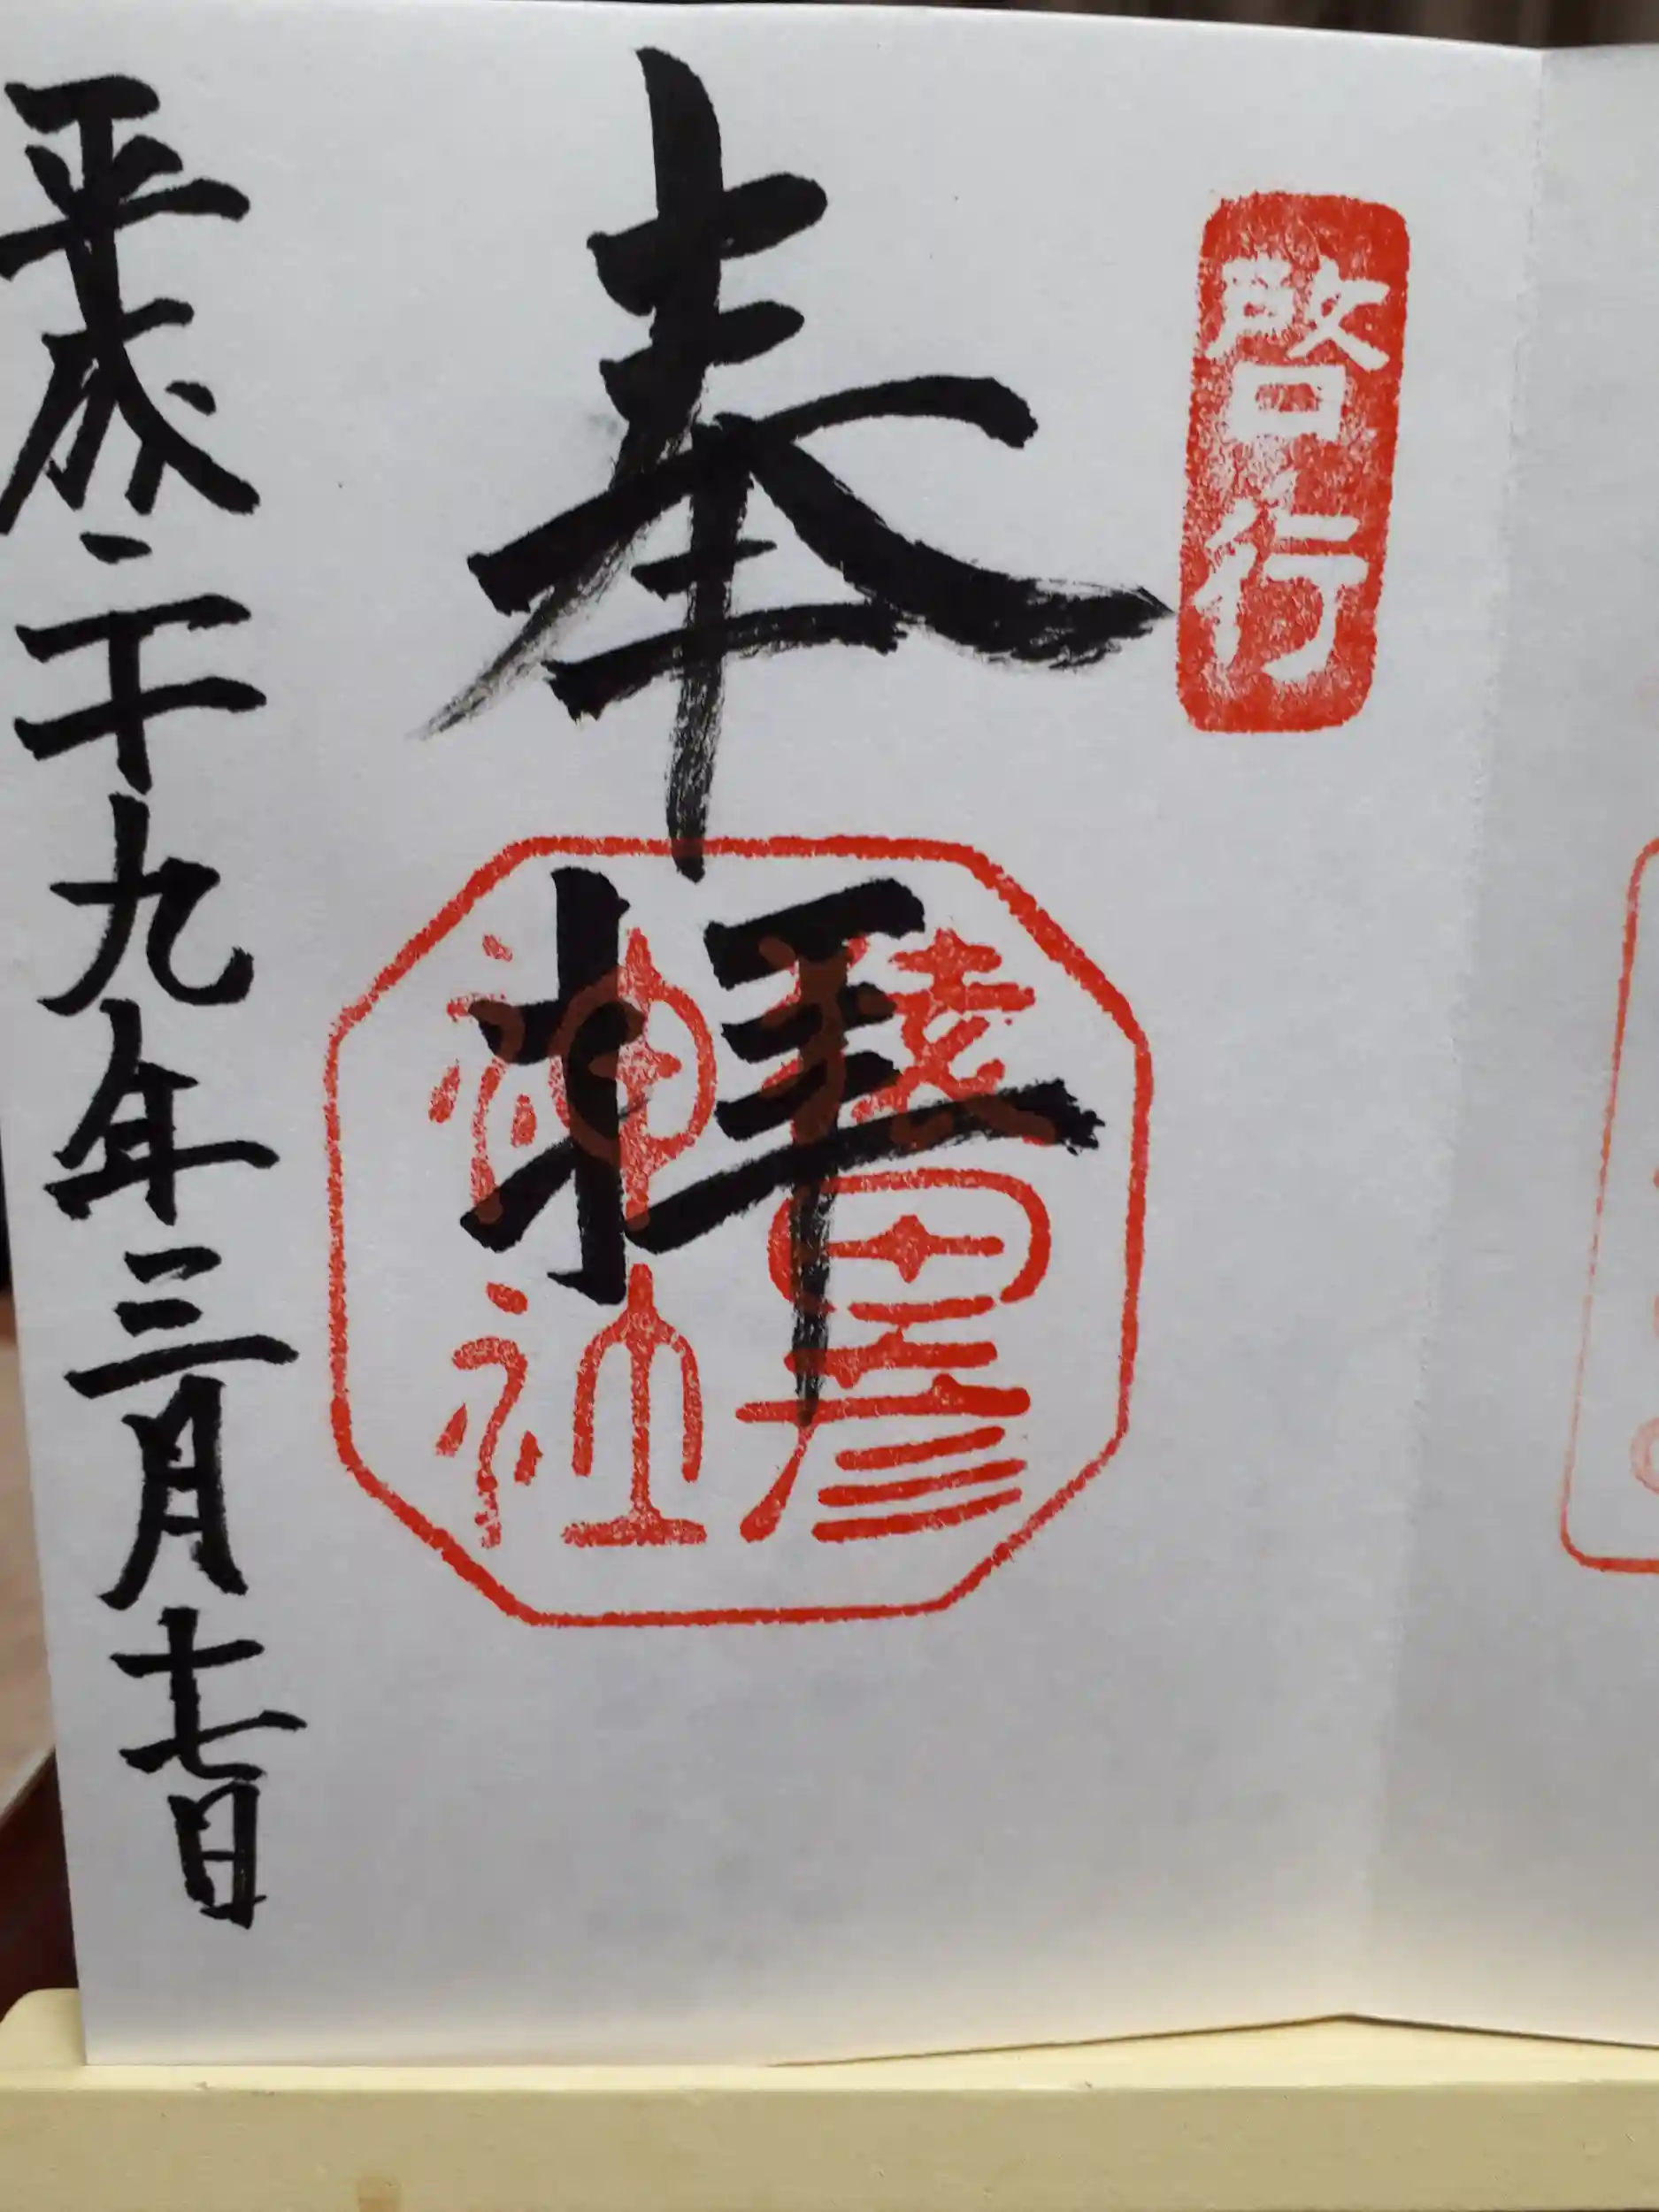 啓行
奉拝
猿田彦
神社
平成二十九年三月十七日